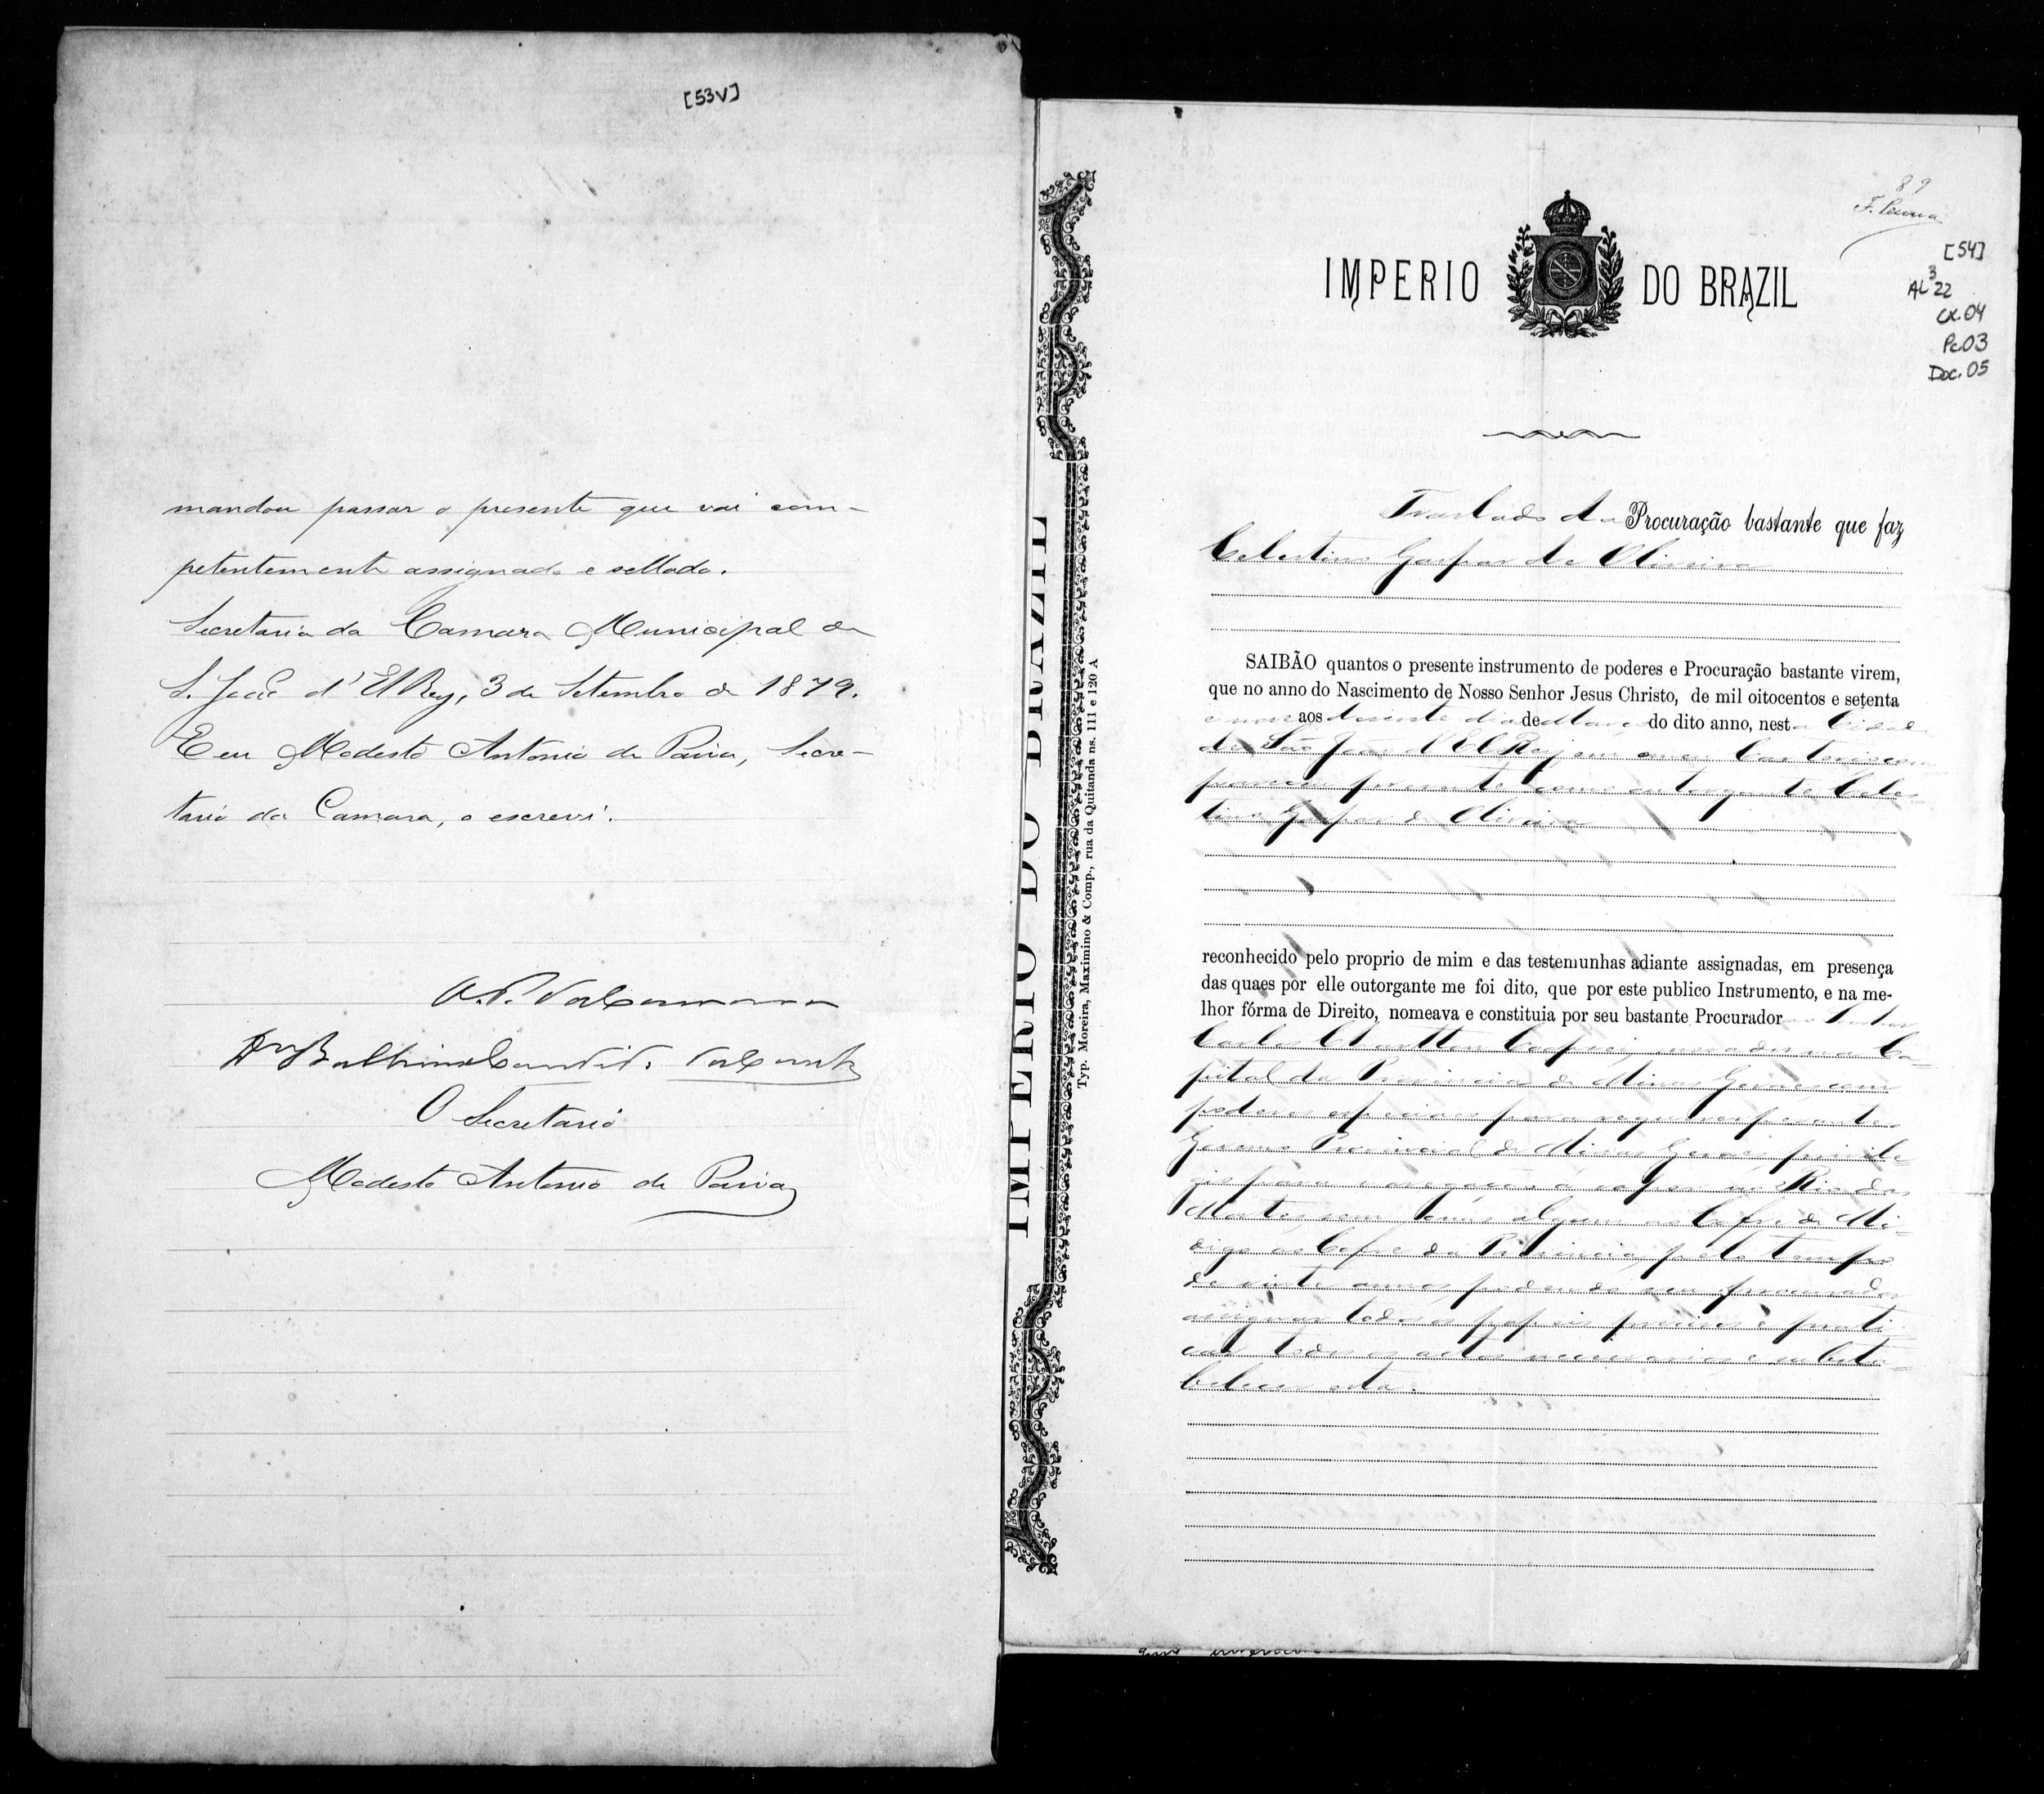 [53V]
mandou passar o presente que vai com-
petentemente assignado e sellado.
Secretaria da Camara Municipal de
S. João d'El Rey, 3 de Setembro de 1879.
E eu Modesto Antonio de Paiva, Secre-
tario da Camara, o escrevi.
O Secretario
Modesto Antonio de Paiva
IMPERIO DO BRAZIL
Typ. Moreira, Maximino & Comp., rua da Quitanda ns. 111 e 120 A
89
[54]
AL 3 22
cx.04
Pc.03
Doc. 05
IMPERIO DO BRAZIL
Traslado da Procuração bastante que faz
Celestino Gaspar de Oliveira
SAIBÃO quantos o presente instrumento de poderes e Procuração bastante virem,
que no anno do Nascimento de Nosso Senhor Jesus Christo, de mil oitocentos e setenta
e nove aos dia de Março do dito anno, nesta Cidade
de São João d'El Rey em meu Cartorio com
pareceu presente como outorgante Celes
tino Gaspar de Oliveira
reconhecido pelo proprio de mim e das testemunhas adiante assignadas, em presença
das quaes por elle outorgante me foi dito, que por este publico Instrumento, e na me-
lhor fórma de Direito, nomeava e constituia por seu bastante Procurador
Carlos morador na Ca-
pital da Provincia de Minas Geraes com
poderes especiaes para requerer perante o
Governo Provincial de Minas Geraes privile-
gio para navegação á vapor no Rio das
Mortes, sem onus algum ao Cofre de Mi-
digo ao Cofre da Provincia, pelo tempo
de vinte annos podendo seu procurador
assignar todos os papeis precisos e prati-
car todos os actos necessarios e substa-
belecer esta.